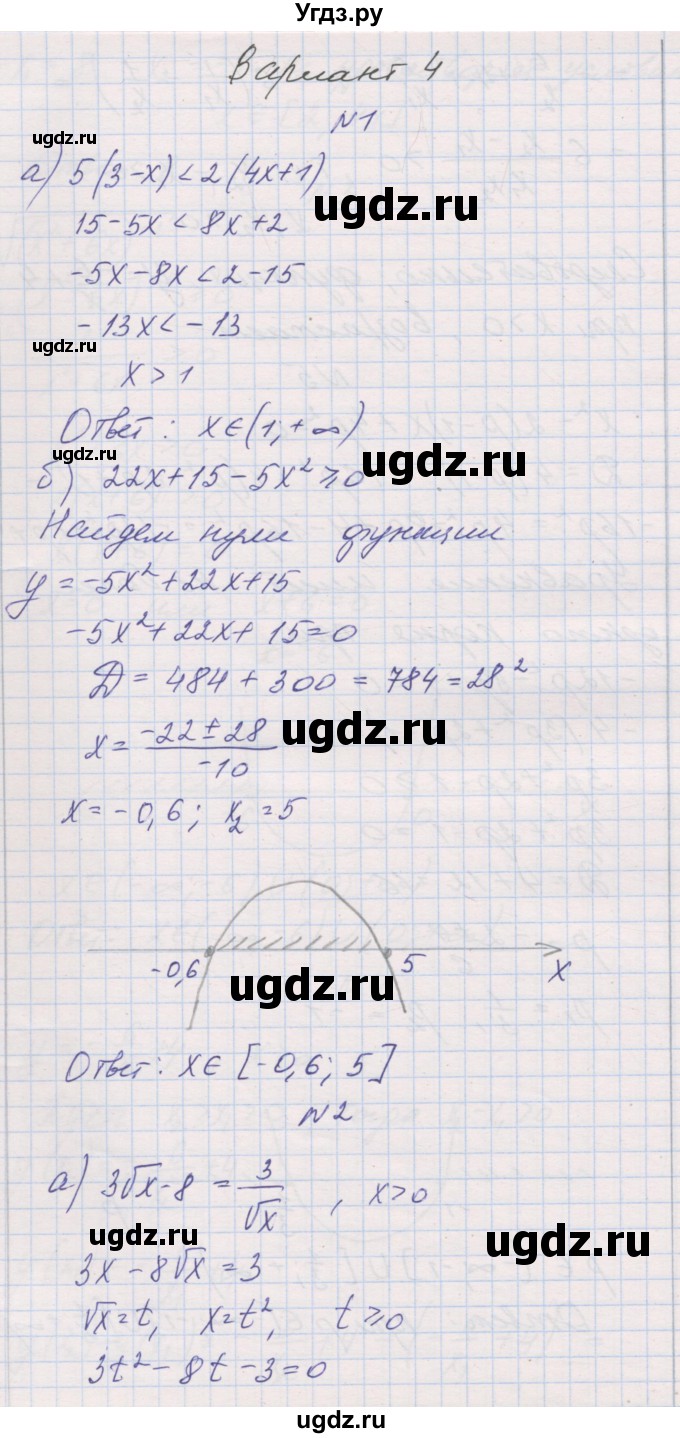 Угдз.ру
Вариант 4
ugdz.ru
N1
а) 5(3-x)<2(4x+1)
ugdz.ru
15-5x<8x+2
-5x-8x<2-15
-13x<-13
ugdz.ru
x>1
Ответ: x∈(1;+∞)
б) 22x+15-5x²≥0
ugdz.ru
Найдем нули функции
y=-5x²+22x+15
-5x²+22x+15=0
D=484+300=784=28²
x=(-22±28)/(-10)
ugdz.ru
x=-0,6; x₂=5
-0,6 5 x
ugdz.ru
Ответ: x∈[-0,6; 5]
N2
а) 3√x-8=3/√x, x>0
ugdz.ru
ugdz.ru
3x-8√x=3
√x=t, x=t², t≥0
3t²-8t-3=0
ugdz.ru